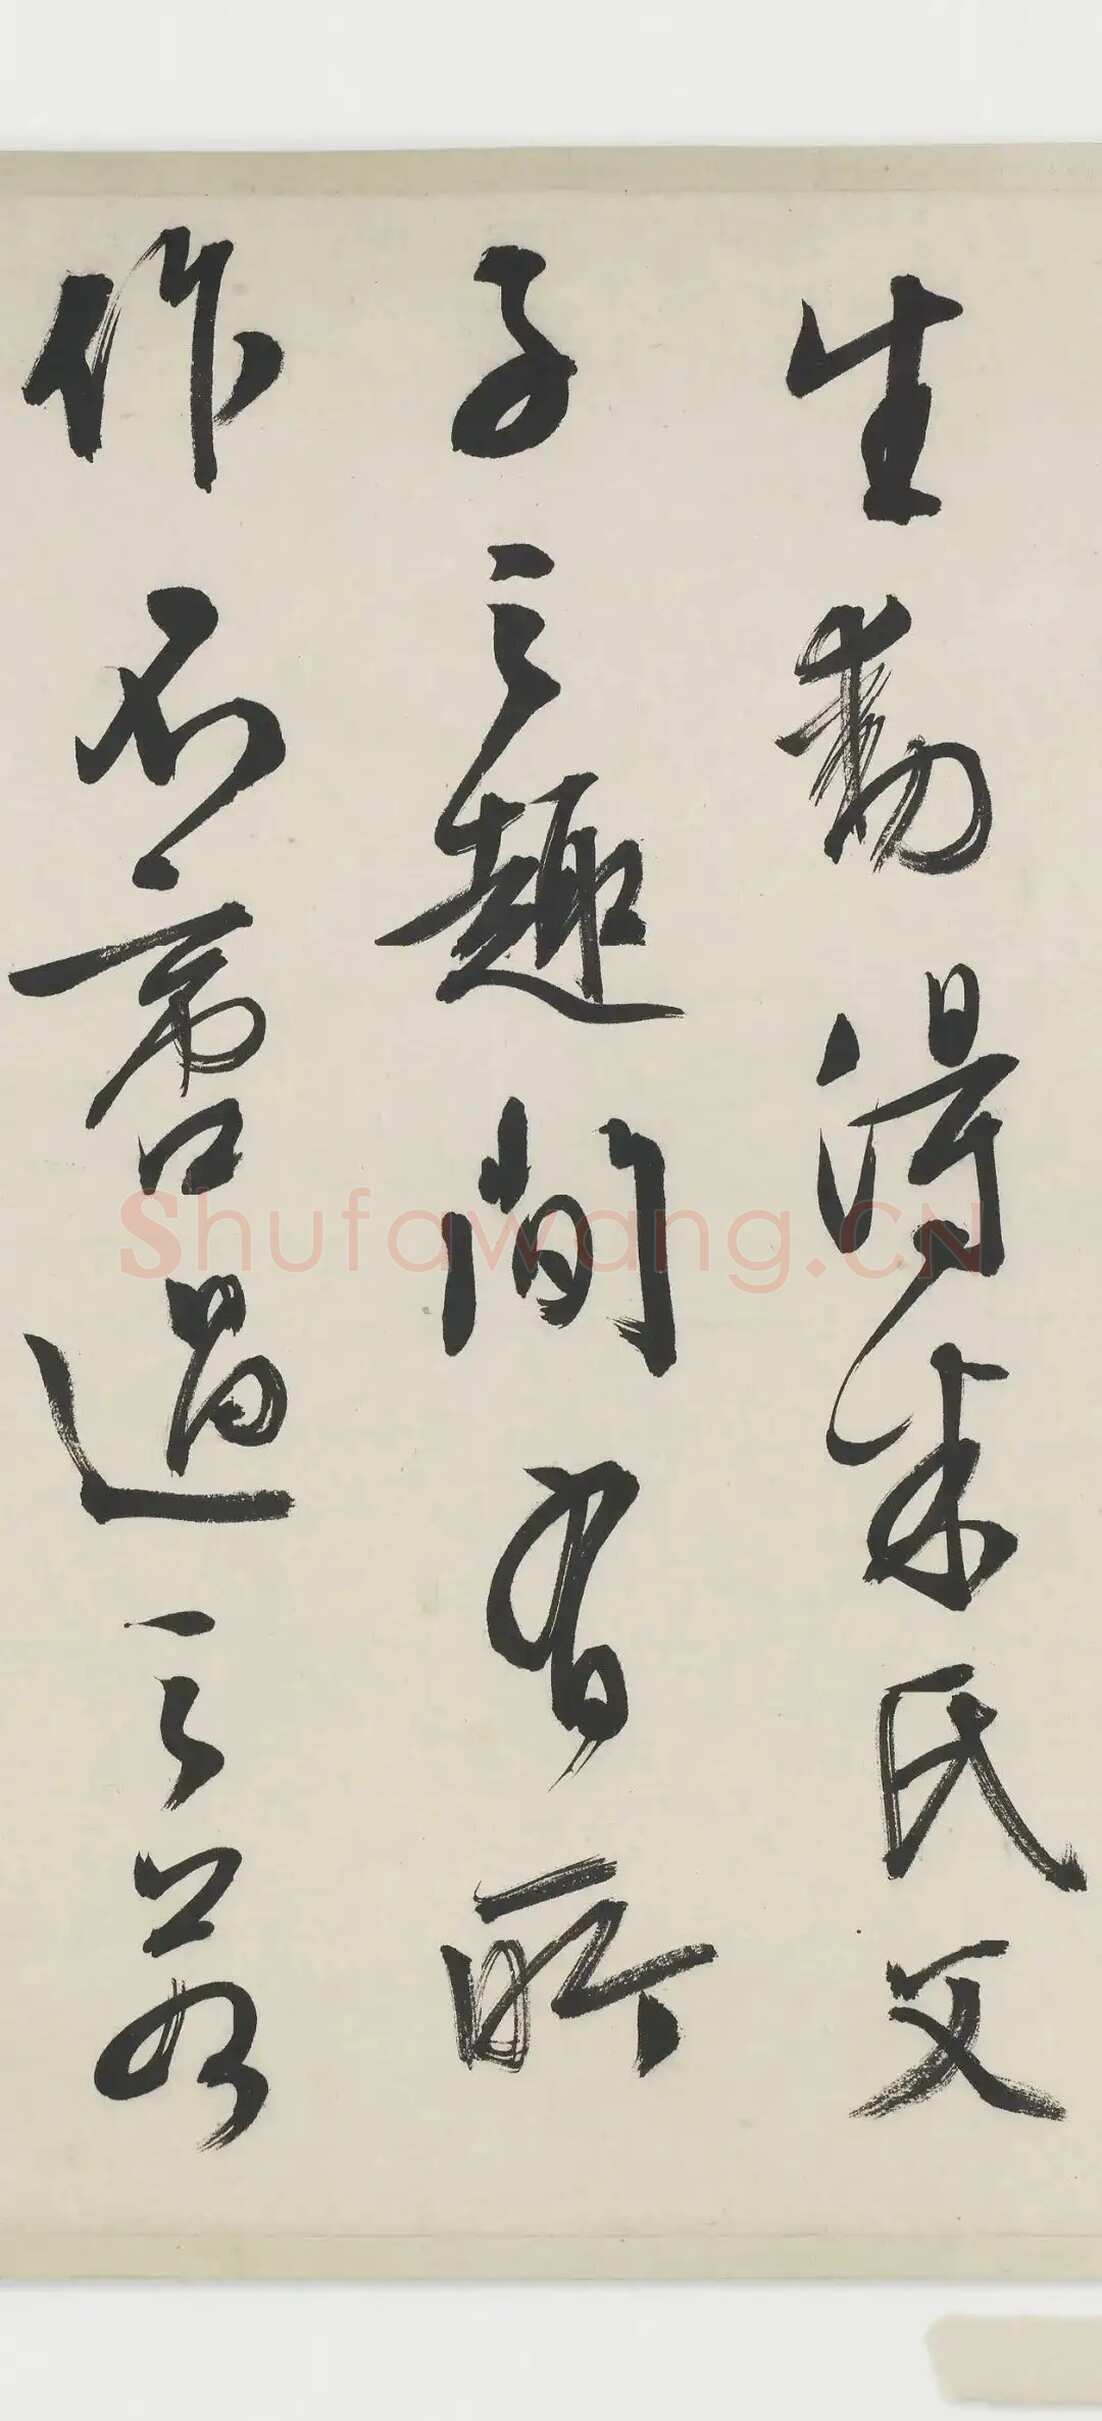 生動得米氏父
子之趣間有所
作不啻過之若
Shufawang.CN